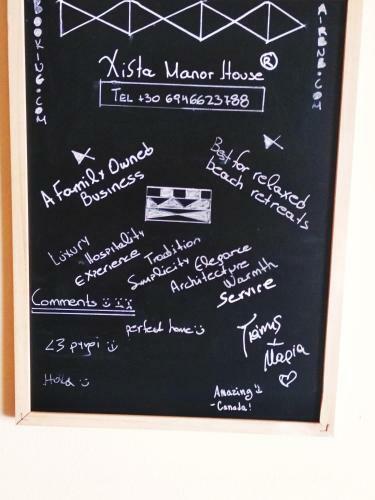 BOOKING.COM
AIRBNB.COM
Xista Manor House ®
TEL +30 6946623788
A Family Owned
Business
Best for relaxed
beach retreats
Luxury
Hospitality
Experience
Tradition
Simplicity Elegance
Architecture
Warmth
Service
Comments
perfect home
<3 ρypi
Hola
+
Μαρία
Amazing
-Canada!